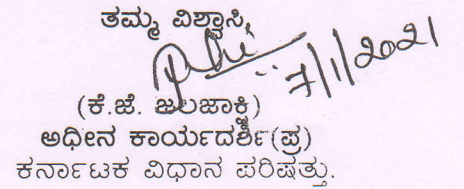 ತಮ್ಮ ವಿಶ್ವಾಸಿ,
7/1/2021
(ಕೆ.ಜೆ. ಜಲಜಾಕ್ಷಿ)
ಅಧೀನ ಕಾರ್ಯದರ್ಶಿ(ಪ್ರ)
ಕರ್ನಾಟಕ ವಿಧಾನ ಪರಿಷತ್ತು.